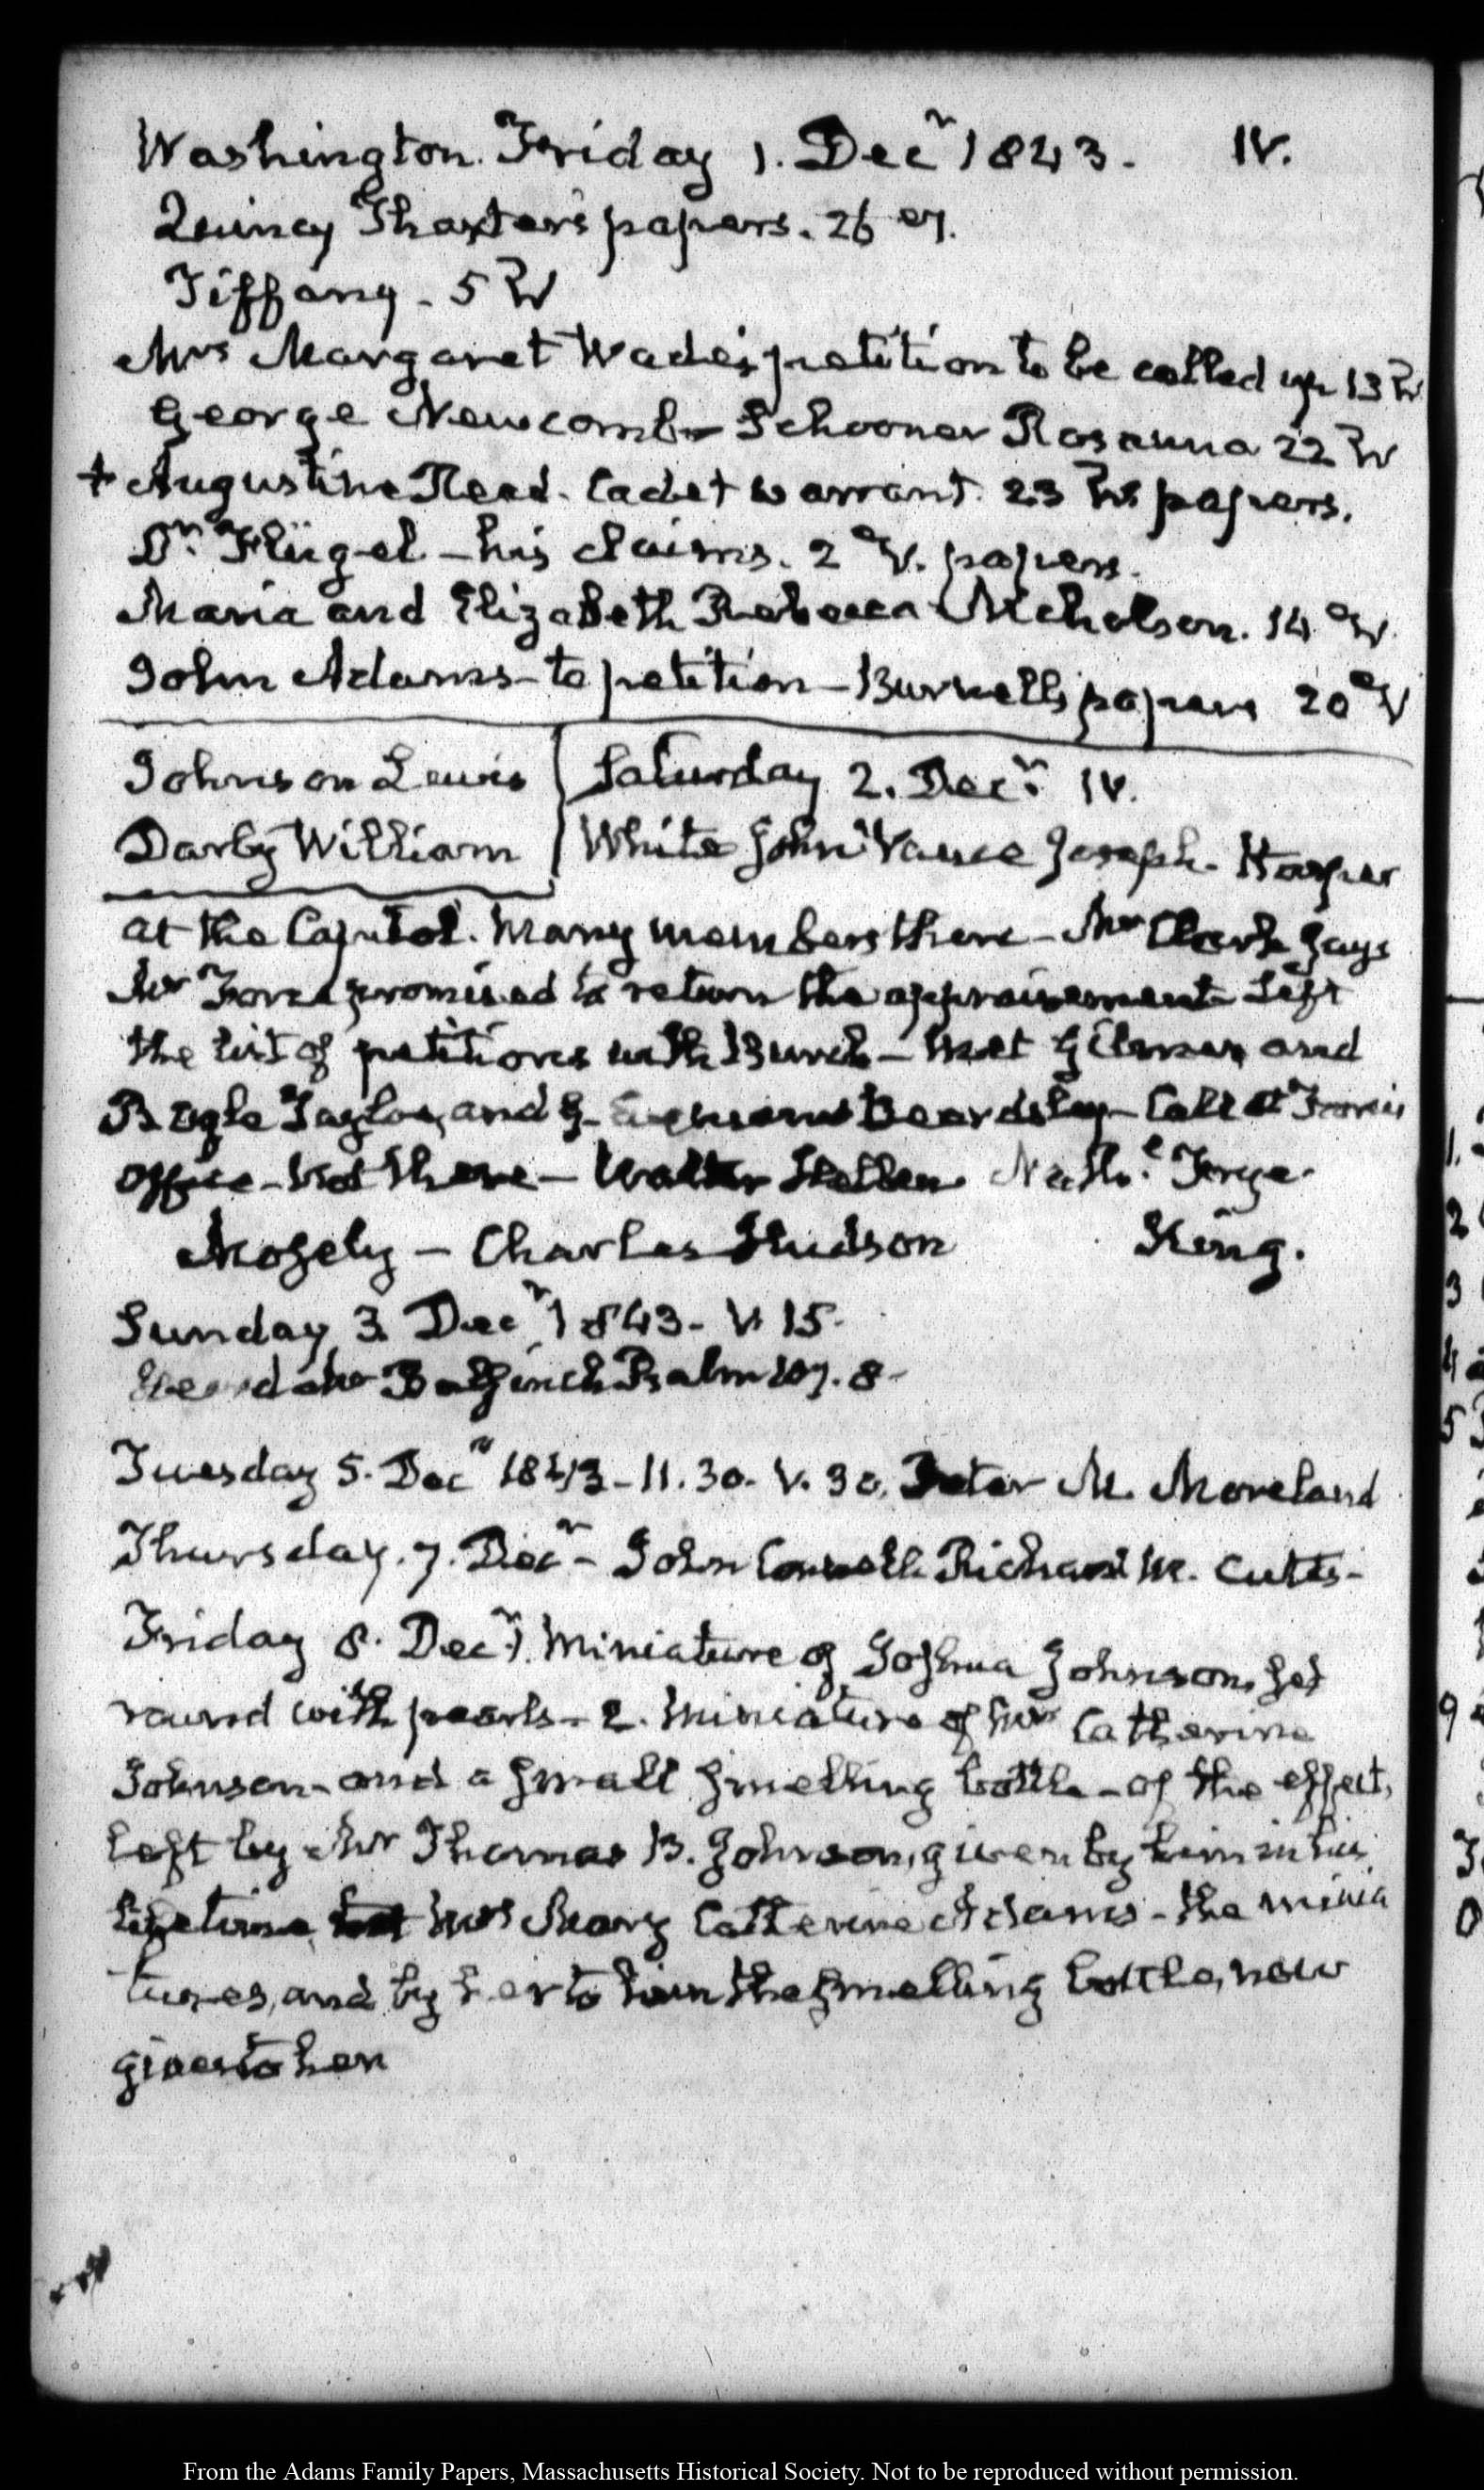 Washington. Friday 1. Decr 1843. IV.
Quincy Thaxter's papers. 26
Tiffany - 5
Mrs Margaret Wade's petition to be called up 13
George Newcomb Schooner Rosanna 22
+ Augustine Read. Cadet warrant. 23 papers.
Dr. Flügel - his claims. 2 papers.
Maria and Elizabeth Rebecca Nicholson. 14
John Adams - to petition - Burnell's papers 20
Johnson Lewis
Darby William
Saturday 2. Decr. IV.
White John Vance Joseph - Harper
at the Capitol. Many members there - Mr Clark says
Mr Force promised to return the appraisement Left
the list of petitions with Burch - met Gilmer and
B. Ogle Tayloe, and G. Beardsley - Call at Force's
office - not there - Walter Hellen Nathl.
Mosely - Charles Hudson King.
Sunday 3 Decr 1843 - V. 15.
Heard Mr Bulfinch Psalm 107. 8 -
Tuesday 5. Decr 1843 - 11. 30. V. 30. Peter M. Moreland
Thursday. 7. Decr - John Richard M. Cutts -
Friday 8. Decr. 1. Miniature of Joshua Johnson, set
round with pearls - 2. Miniature of Mrs Catherine
Johnson - and a small smelling bottle - of the effects
left by Mr Thomas B. Johnson, given by him in his
lifetime Mrs Mary Catherine Adams - the minia
tures, and by her to him the smelling bottle, now
given to her
From the Adams Family Papers, Massachusetts Historical Society. Not to be reproduced without permission.